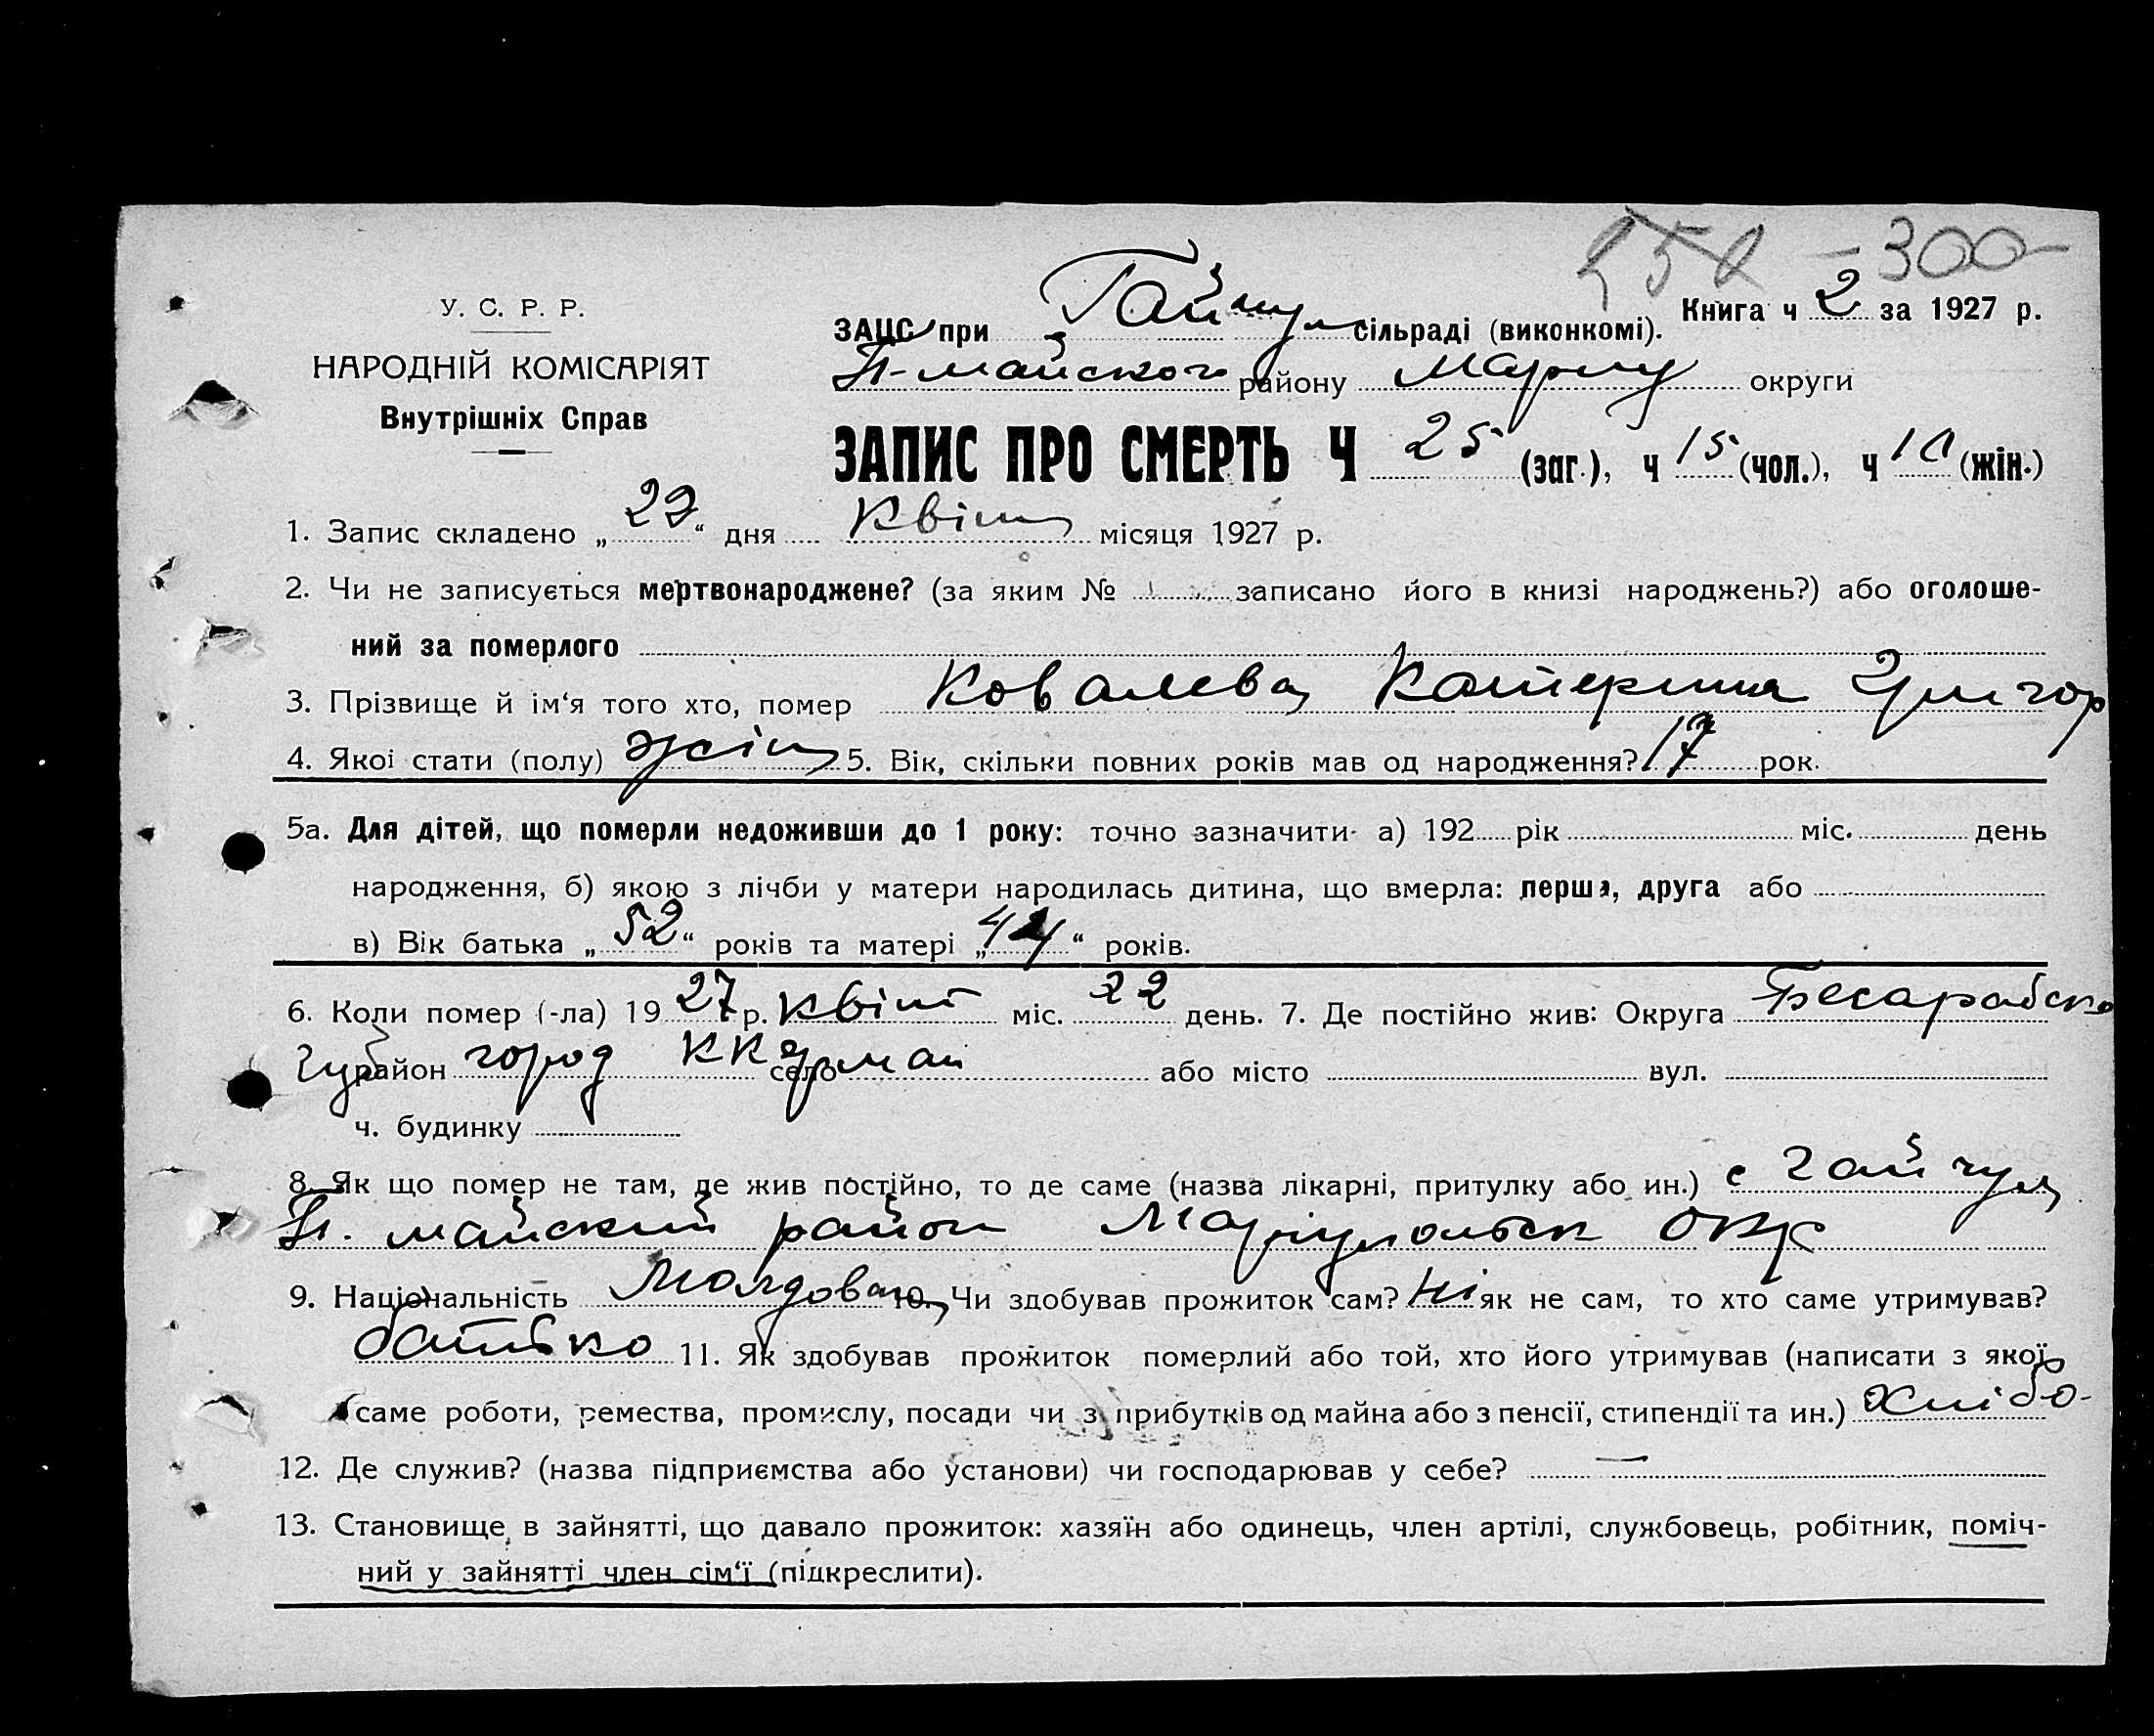 252 - 300 -
У. С. Р. Р.
НАРОДНІЙ КОМІСАРІЯТ
Внутрішніх Справ
Книга ч 2 за 1927 р.
ЗАЦС при Гайчул сільраді (виконкомі).
Н-майского району Маріу округи
ЗАПИС ПРО СМЕРТЬ Ч 25 (заг.), ч 15 (чол.), ч 10 (жін.)
1. Запис складено „22“ дня Квіт місяця 1927 р.
2. Чи не записується мертвонароджене? (за яким № записано його в книзі народжень?) або оголоше-
ний за померлого
3. Прізвище й ім‘я того хто, помер Ковалева Катерина Григор
4. Якоі стати (полу) жін 5. Вік, скільки повних років мав од народження? 17 рок.
5а. Для дітей, що померли недоживши до 1 року: точно зазначити а) 192 рік міс. день
народження, б) якою з лічби у матери народилась дитина, що вмерла: перша, друга або
в) Вік батька „52“ років та матері „44“ років.
6. Коли помер (-ла) 1927 р. квіт міс. 22 день. 7. Де постійно жив: Округа Бесарабско
Губ район город село або місто вул.
ч. будинку
8. Як що помер не там, де жив постійно, то де саме (назва лікарні, притулку або ин.) с Гайчул
Н. майский район Маріупольск окр
9. Національність Молдован 10. Чи здобував прожиток сам? Ні як не сам, то хто саме утримував?
батько 11. Як здобував прожиток померлий або той, хто його утримував (написати з якої
саме роботи, ремества, промислу, посади чи з прибутків од майна або з пенсії, стипендії та ин.) Хлібо-
12. Де служив? (назва підприємства або установи) чи господарював у себе? —
13. Становище в зайнятті, що давало прожиток: хазяїн або одинець, член артілі, службовець, робітник, поміч-
ний у зайнятті член сім‘ї (підкреслити).